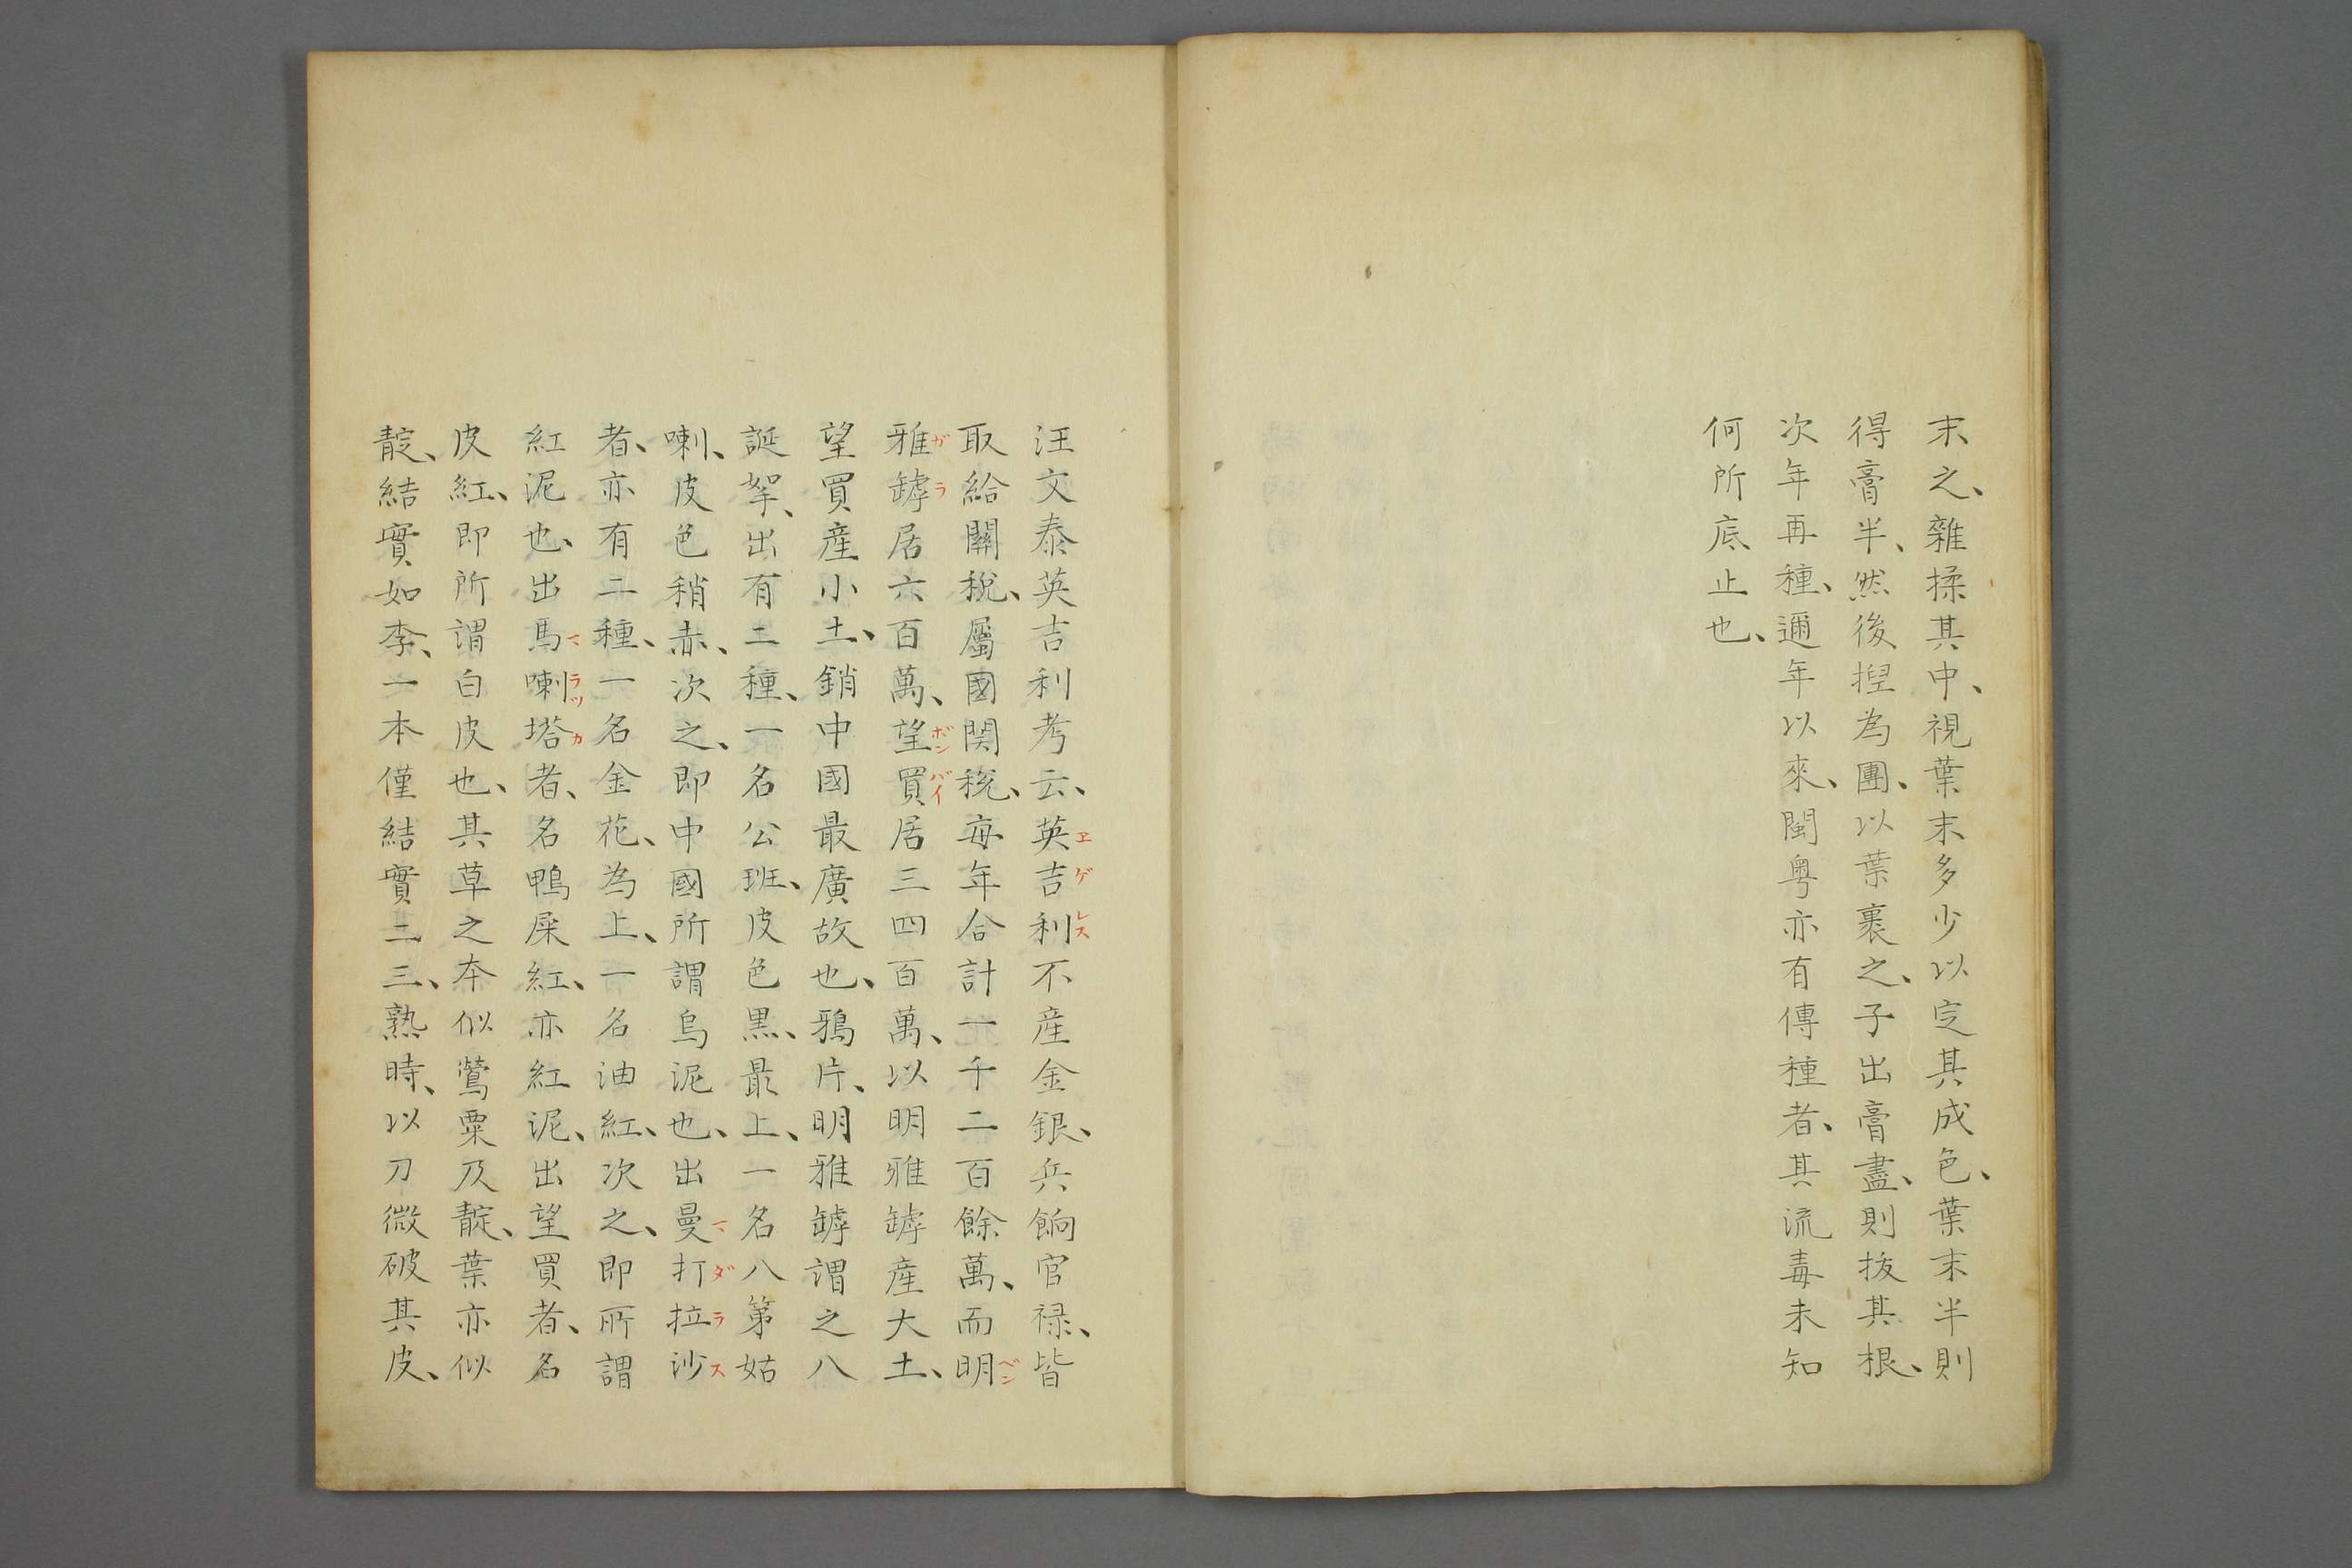 末之、雜揉其中、視葉末多少以定其成色、葉末半則
得膏半、然後揑為團、以葉裹之、子出膏盡、則拔其根、
次年再種、邇年以來、閩粤亦有傳種者、其流毒未知
何所底止也、
汪文泰英吉利考云、英吉利不産金銀、兵餉官禄、皆
ヱゲレス
取給關稅、屬國関稅、每年合計一千二百餘萬、而明
ベン
雅罅居六百萬、望買居三四百萬、以明雅罅産大土、
ガラ ボンバイ
望買産小土、銷中國最廣故也、鴉片、明雅罅謂之八
誕挐、出有二種、一名公班、皮色黒、最上、一名八第姑
喇、皮色稍赤、次之、即中國所謂烏泥也、出曼打拉沙
マダラス
者、亦有二種、一名金花、為上、一名油紅、次之、即所謂
紅泥也、出馬喇塔者、名鴨屎紅、亦紅泥、出望買者、名
マラツカ
皮紅、即所謂白皮也、其草之夲似鶯粟及靛、葉亦似
靛、結實如李、一本僅結實二三、熟時、以刀微破其皮、